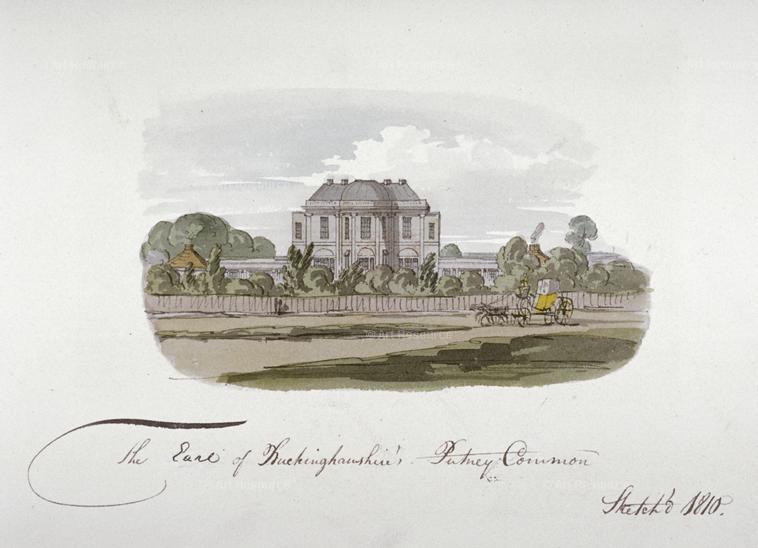 © Art Resource
The Earl of Buckinghamshire's Putney Common
Sketch'd 1810.